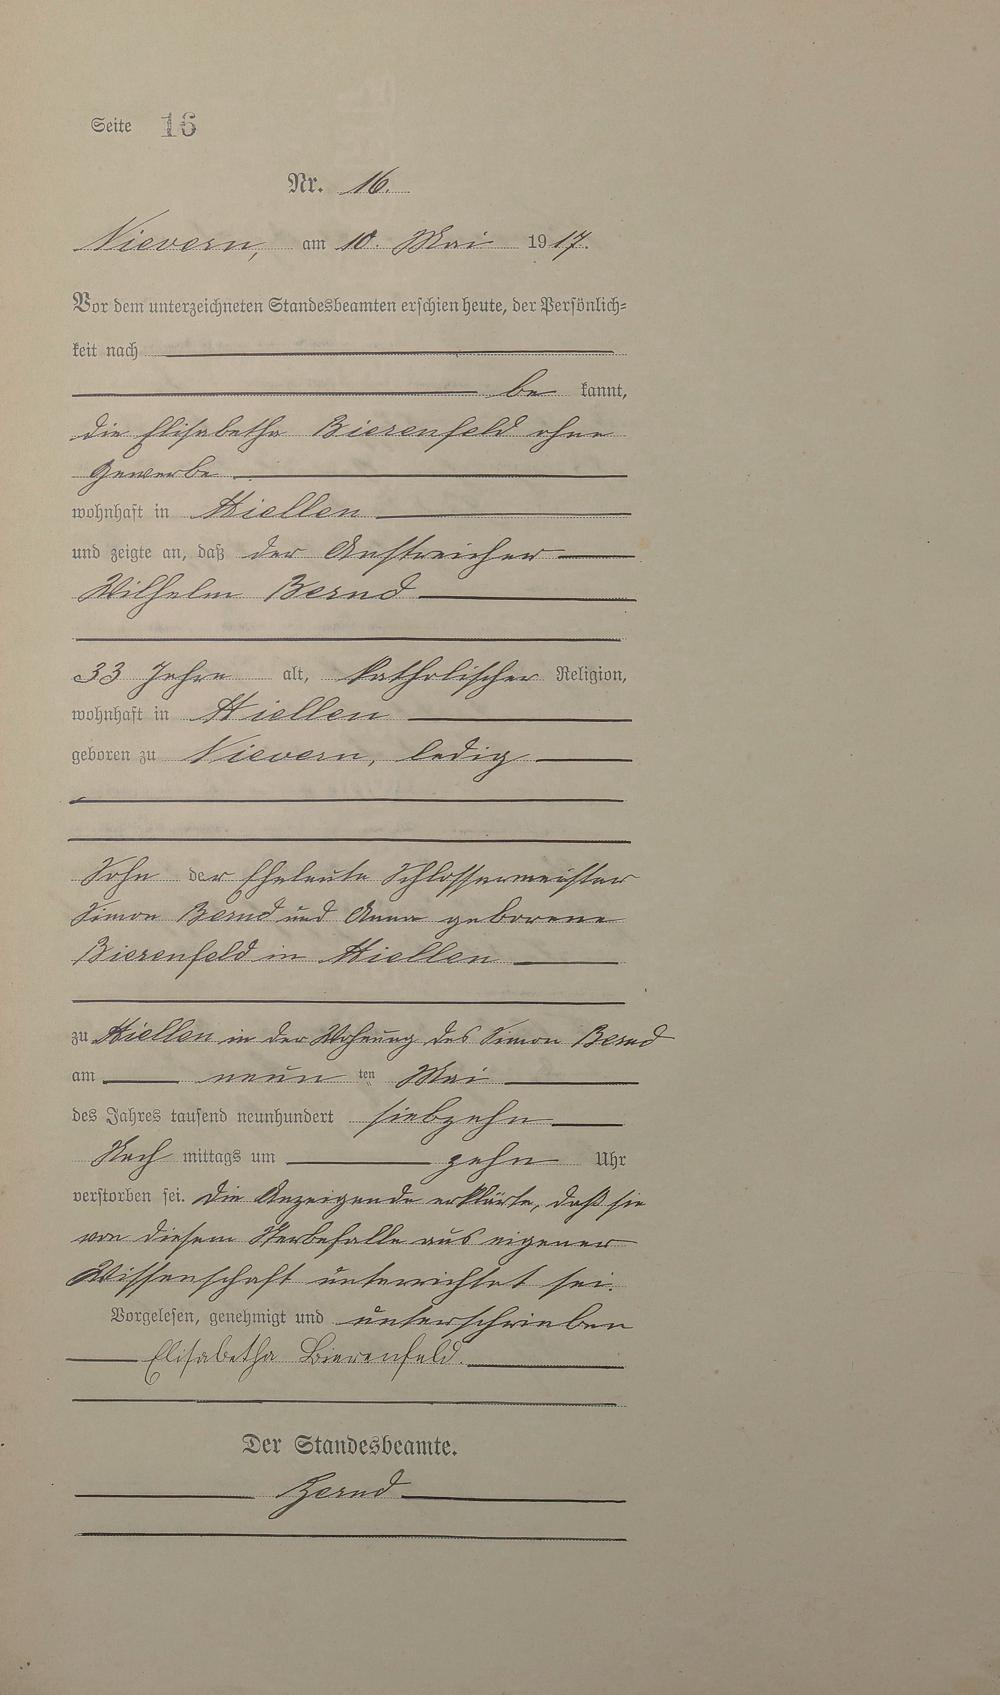 Seite 16
Nr. 16.
Nievern, am 10. Mai 1917.
Vor dem unterzeichneten Standesbeamten erschien heute, der Persönlich=
keit nach
be kannt,
die Elisabetha Bierenfeld ohne
Gewerbe
wohnhaft in Miellen
und zeigte an, daß der Anstreicher
Wilhelm Bernd
33 Jahre alt, katholischer Religion,
wohnhaft in Miellen
geboren zu Nievern, ledig
Sohn der Eheleute Schlossermeister
Simon Bernd und Anna geborene
Bierenfeld in Miellen
zu Miellen in der Wohnung des Simon Bernd
am neun ten Mai
des Jahres tausend neunhundert siebzehn
Nach mittags um zehn Uhr
verstorben sei. Die Anzeigende erklärte, daß sie
von diesem Sterbefalle aus eigener
Wissenschaft unterrichtet sei.
Vorgelesen, genehmigt und unterschrieben
Elisabetha Bierenfeld.
Der Standesbeamte.
Bernd